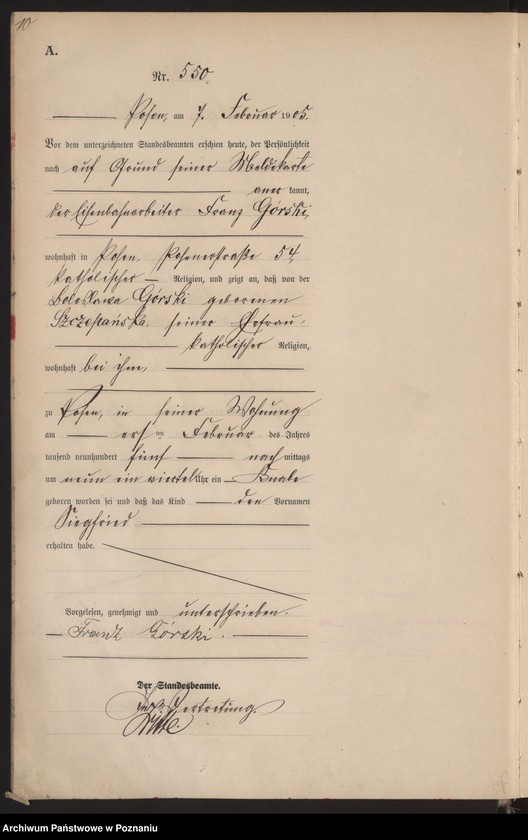 10
A.
Nr. 550.
Posen, am 7. Februar 1905.
Vor dem unterzeichneten Standesbeamten erschien heute, der Persönlichkeit
nach auf Grund seiner Meldekarte
aner kannt,
der Eisenbahnarbeiter Franz Górski,
wohnhaft in Posen, Posenerstraße 54,
katholischer Religion, und zeigt an, daß von der
Boleslawa Górski geborenen
Szczepańska, seiner Ehefrau,
katholischer Religion,
wohnhaft bei ihm,
zu Posen, in seiner Wohnung
am ersten Februar des Jahres
tausend neunhundert fünf nach mittags
um neun ein viertel Uhr ein Knabe
geboren worden sei und daß das Kind den Vornamen
Siegfried
erhalten habe.
Vorgelesen, genehmigt und unterschrieben.
Franz Górski.
Der Standesbeamte.
In Vertretung.
Archiwum Państwowe w Poznaniu